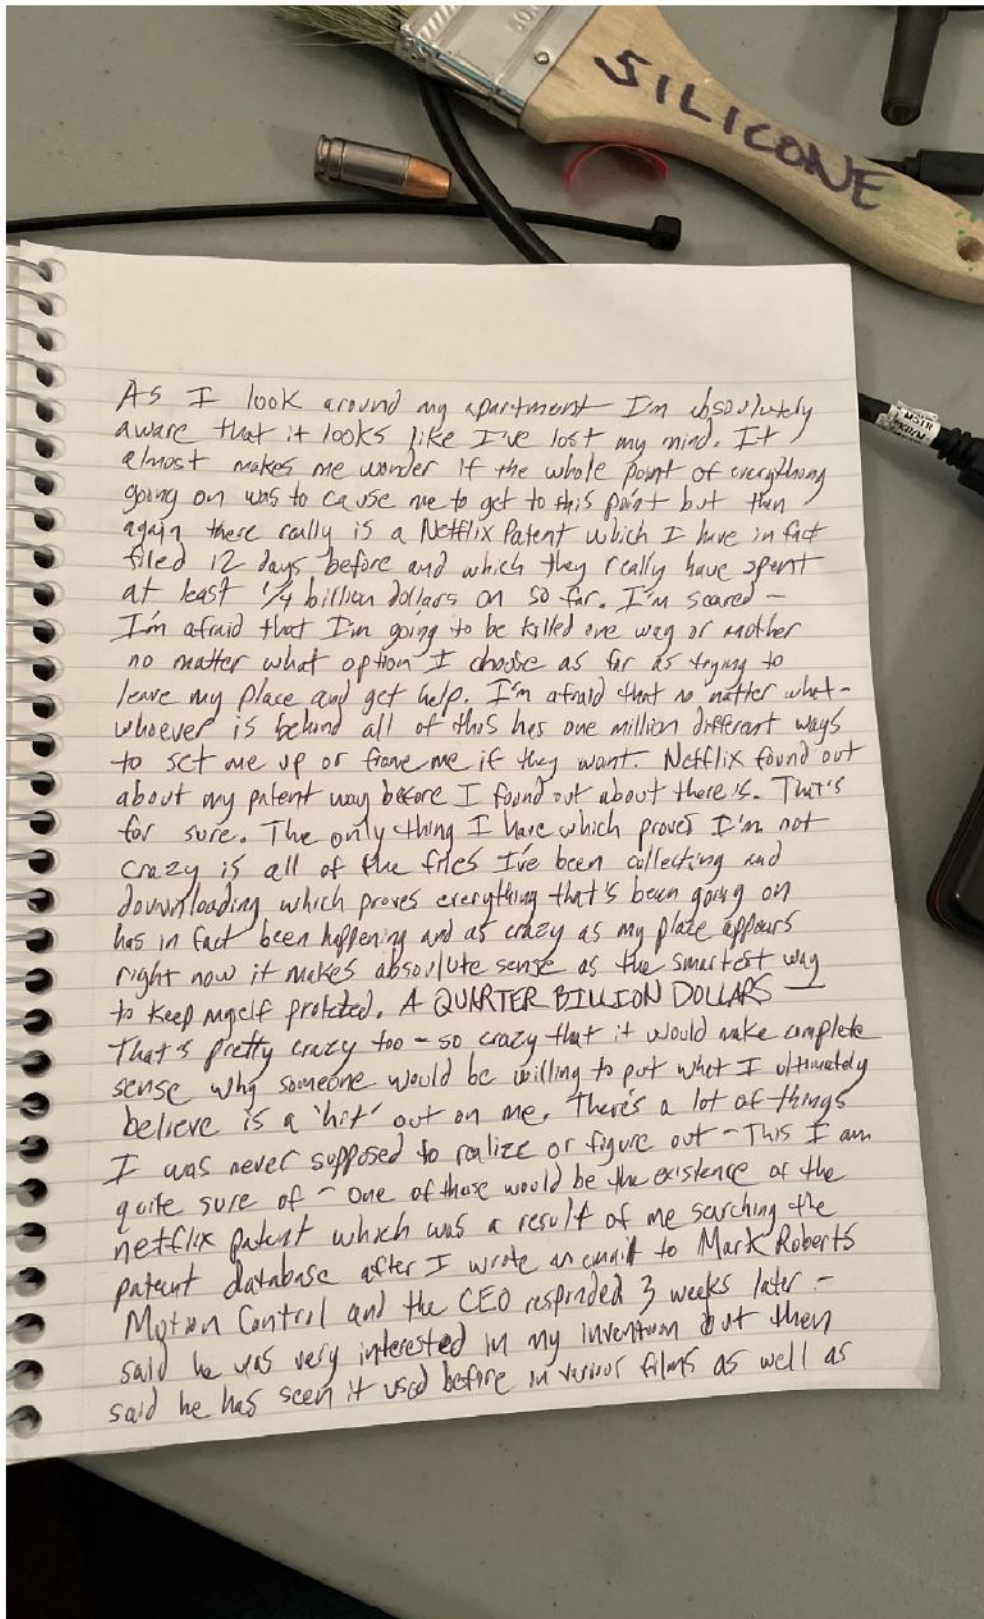 SILICONE
As I look around my apartment I'm absolutely
aware that it looks like I've lost my mind. It
almost makes me wonder if the whole point of everything
going on was to cause me to get to this point but then
again there really is a Netflix Patent which I have in fact
filed 12 days before and which they really have spent
at least 1/4 billion dollars on so far. I'm scared -
I'm afraid that I'm going to be killed one way or another
no matter what option I choose as far as trying to
leave my place and get help. I'm afraid that no matter what -
whoever is behind all of this has one million different ways
to set me up or frame me if they want. Netflix found out
about my patent way before I found out about there is. That's
for sure. The only thing I have which proves I'm not
crazy is all of the files I've been collecting and
downloading which proves everything that's been going on
has in fact been happening and as crazy as my place appears
right now it makes absolute sense as the smartest way
to keep myself protected. A QUARTER BILLION DOLLARS —
That's pretty crazy too - so crazy that it would make complete
sense why someone would be willing to put what I ultimately
believe is a 'hit' out on me. There's a lot of things
I was never supposed to realize or figure out - This I am
quite sure of - one of those would be the existence of the
netflix patent which was a result of me searching the
patent database after I wrote an email to Mark Roberts
Motion Control and the CEO responded 3 weeks later -
said he was very interested in my invention but then
said he has seen it used before in various films as well as